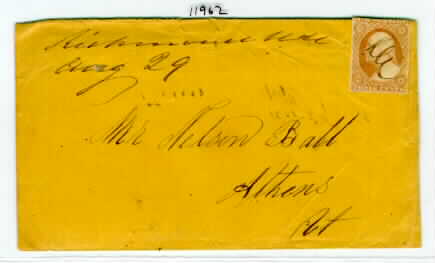 11962
Richmond
Aug 29
Mr Nelson Ball
Athens
Vt